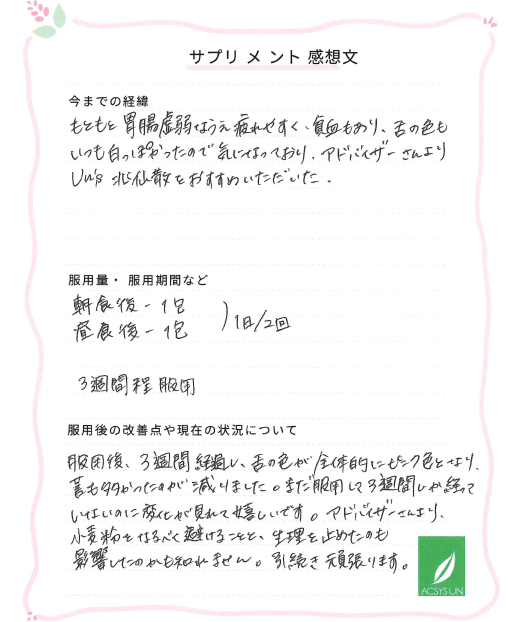 サプリメント感想文
今までの経緯
もともと胃腸虚弱なうえ疲れやすく、貧血もあり、舌の色も
いつも白っぽかったので気になっており、アドバイザーさんより
をおすすめいただいた.
服用量・服用期間など
朝食後-1包
昼食後-1包
1日/2回
3週間程服用
服用後の改善点や現在の状況について
服用後、3週間経過し、舌の色が全体的にピンク色となり、
苔も多かったのが減りました。まだ服用して3週間しか経って
いないのに変化が見れて嬉しいです。アドバイザーさんより、
小麦粉をなるべく避けることと、生理を止めたのも
影響したのかも知れません。引続き頑張ります。
ACSYSUN